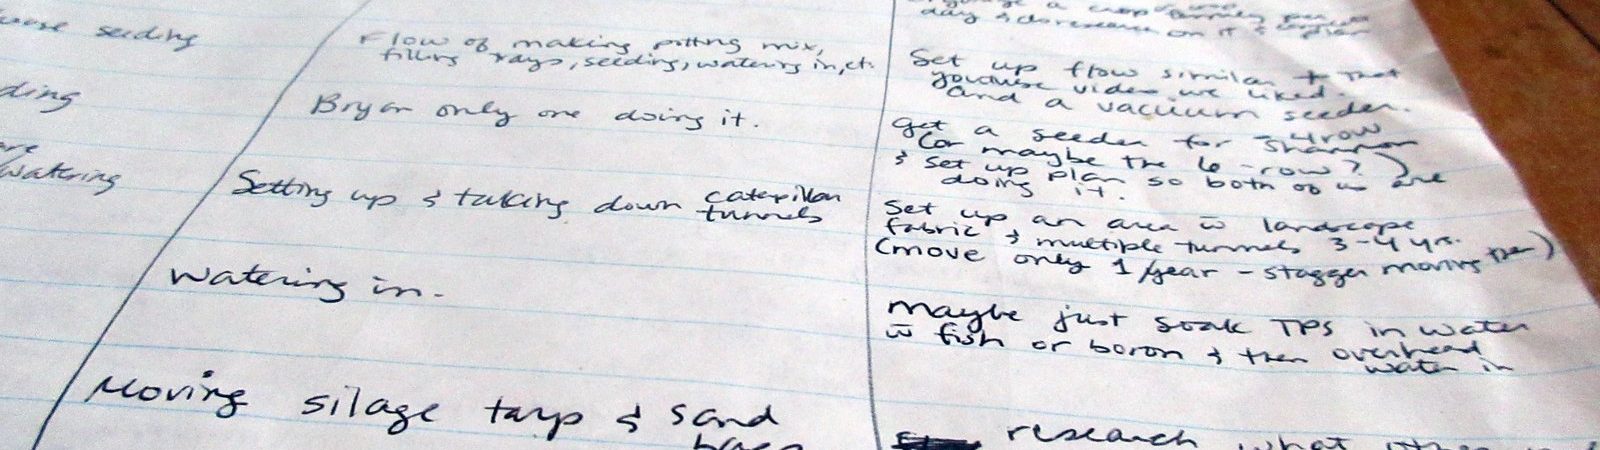 seeding
Flow of making potting mix,
filling trays, seeding, watering in, etc.
Bryan only one doing it.
watering
Setting up & taking down caterpillar
tunnels
Watering in.
Moving silage tarp & sand
bags
day & do research on it &
Set up flow similar to that
youtube video we liked.
and a vacuum seeder.
Get a seeder for 4 row
Shannon
(or maybe the 6-row?)
& set up plan so both of us are
doing it.
Set up an area w̄ landscape
fabric & multiple tunnels 3-4 yrs.
(move only 1/year - stagger moving them)
Maybe just soak TPS in water
w̄ fish or boron & then overhead
water in
research what other